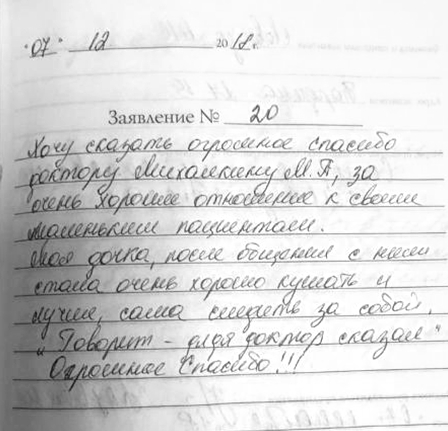 "07" 12 2018 г.
Заявление № 20
Хочу сказать огромное спасибо
доктору Михалкину М.П, за
очень хорошие отношение к своим
маленьким пациентам.
Моя дочка, после общения с ним
стала очень хорошо кушать и
лучше, сама следить за собой.
"Говорит - дядя доктор сказал"
Огромное Спасибо!!!